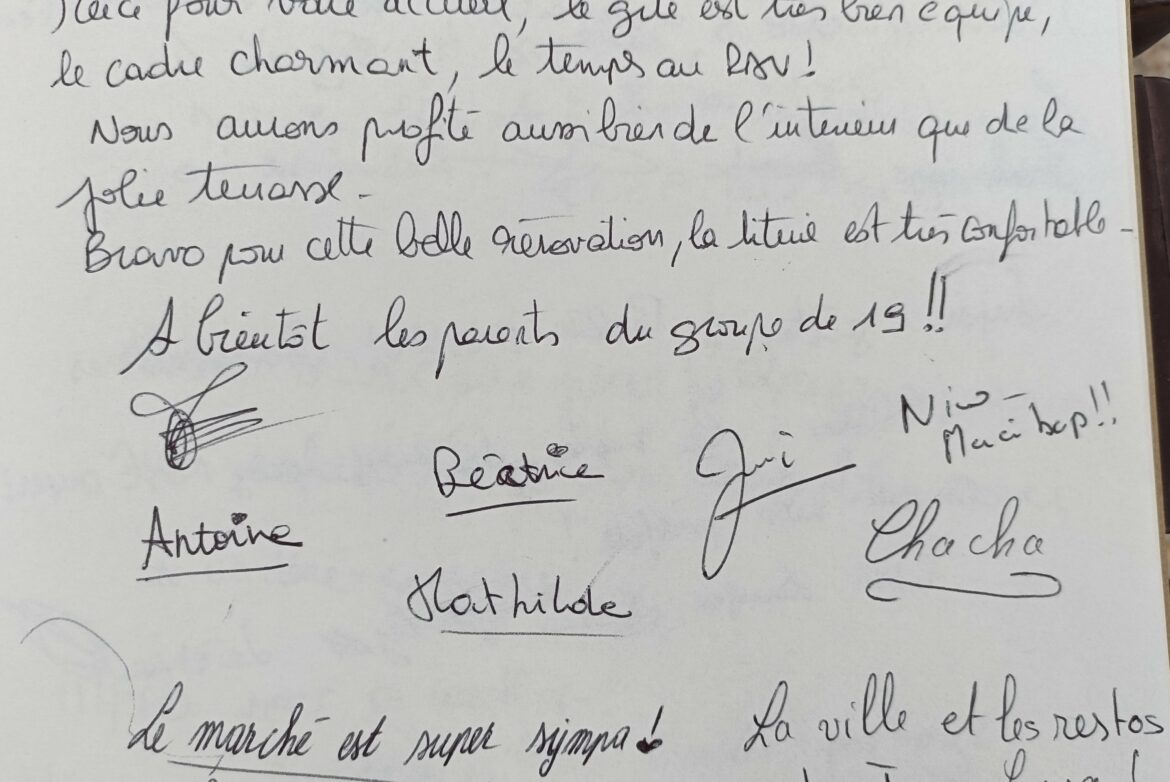 Merci pour votre accueil, le gîte est très bien équipé,
le cadre charmant, le temps au RDV !
Nous aurons profité aussi bien de l'intérieur que de la
jolie terrasse -
Bravo pour cette belle rénovation, la literie est très confortable -
A bientôt les parents du groupe de 19 !!
Nico -
Merci bcp !!
Béatrice
Antoine
Chacha
Mathilde
Le marché est super sympa !
La ville et les restos